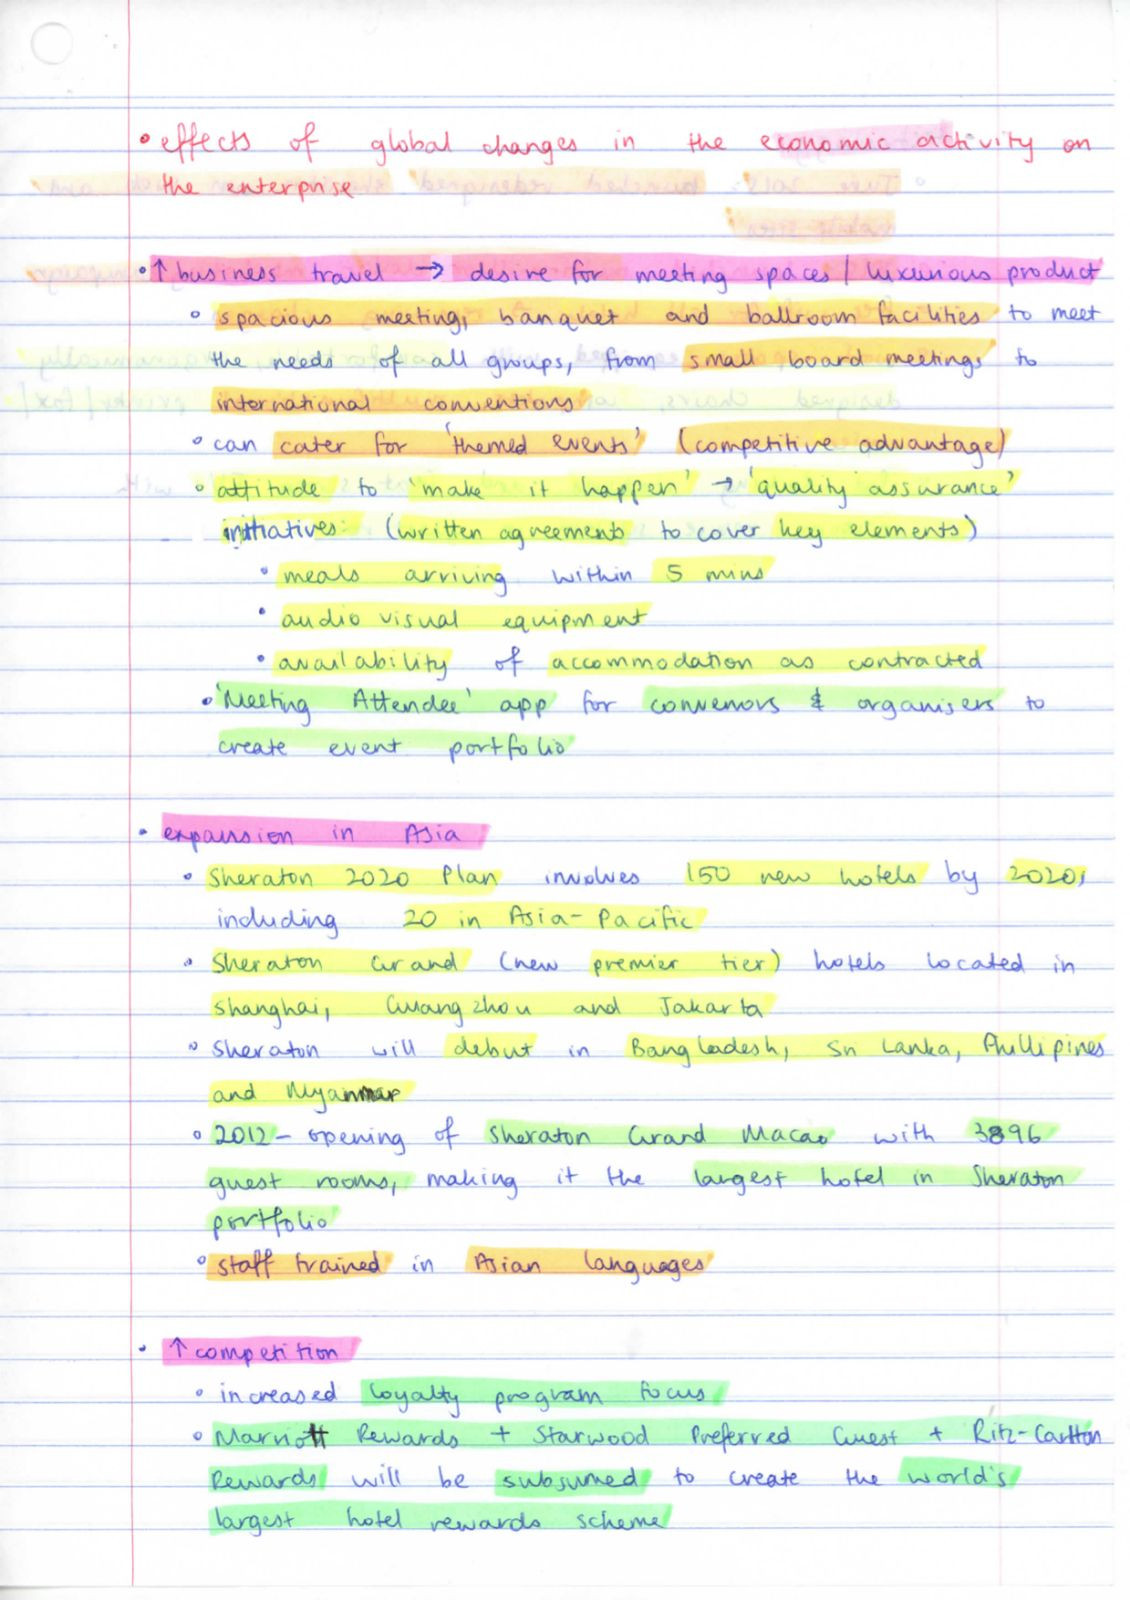 • effects of global changes in the economic activity on
the enterprise
• ↑ business travel → desire for meeting spaces / luxurious product
◦ spacious meeting, banquet and ballroom facilities to meet
the needs of all groups, from small board meetings to
international conventions
◦ can cater for 'themed events' (competitive advantage)
◦ attitude to 'make it happen' → 'quality assurance'
initiatives: (written agreements to cover key elements)
• meals arriving within 5 mins
• audio visual equipment
• availability of accommodation as contracted
• 'Meeting Attendee' app for convenors & organisers to
create event portfolio
• expansion in Asia
• Sheraton 2020 Plan involves 150 new hotels by 2020,
including 20 in Asia-Pacific
◦ Sheraton Grand (new premier tier) hotels located in
Shanghai, Guangzhou and Jakarta
◦ Sheraton will debut in Bangladesh, Sri Lanka, Phillipines
and Myanmar
◦ 2012 - opening of Sheraton Grand Macao with 3896
guest rooms, making it the largest hotel in Sheraton
portfolio
◦ staff trained in Asian languages
• ↑ competition
◦ increased loyalty program focus
◦ Marriott Rewards + Starwood Preferred Guest + Ritz-Carlton
Rewards will be subsumed to create the world's
largest hotel rewards scheme